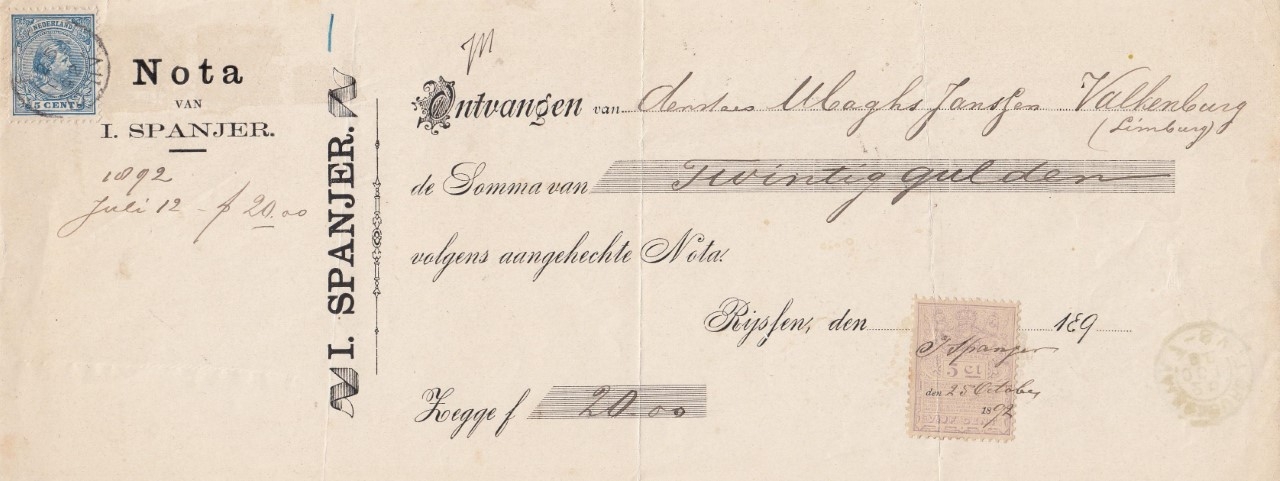 NEDERLAND
5 CENT
Nota
VAN
I. SPANJER.
1892
Juli 12 - f 20.00
I. SPANJER.
Ontvangen van Janssen Valkenburg
(Limburg)
de Somma van Twintig gulden
volgens aangehechte Nota.
Rijssen, den 189
I Spanjer
5 Ct
den 25 October
1892
Zegge f 20.00